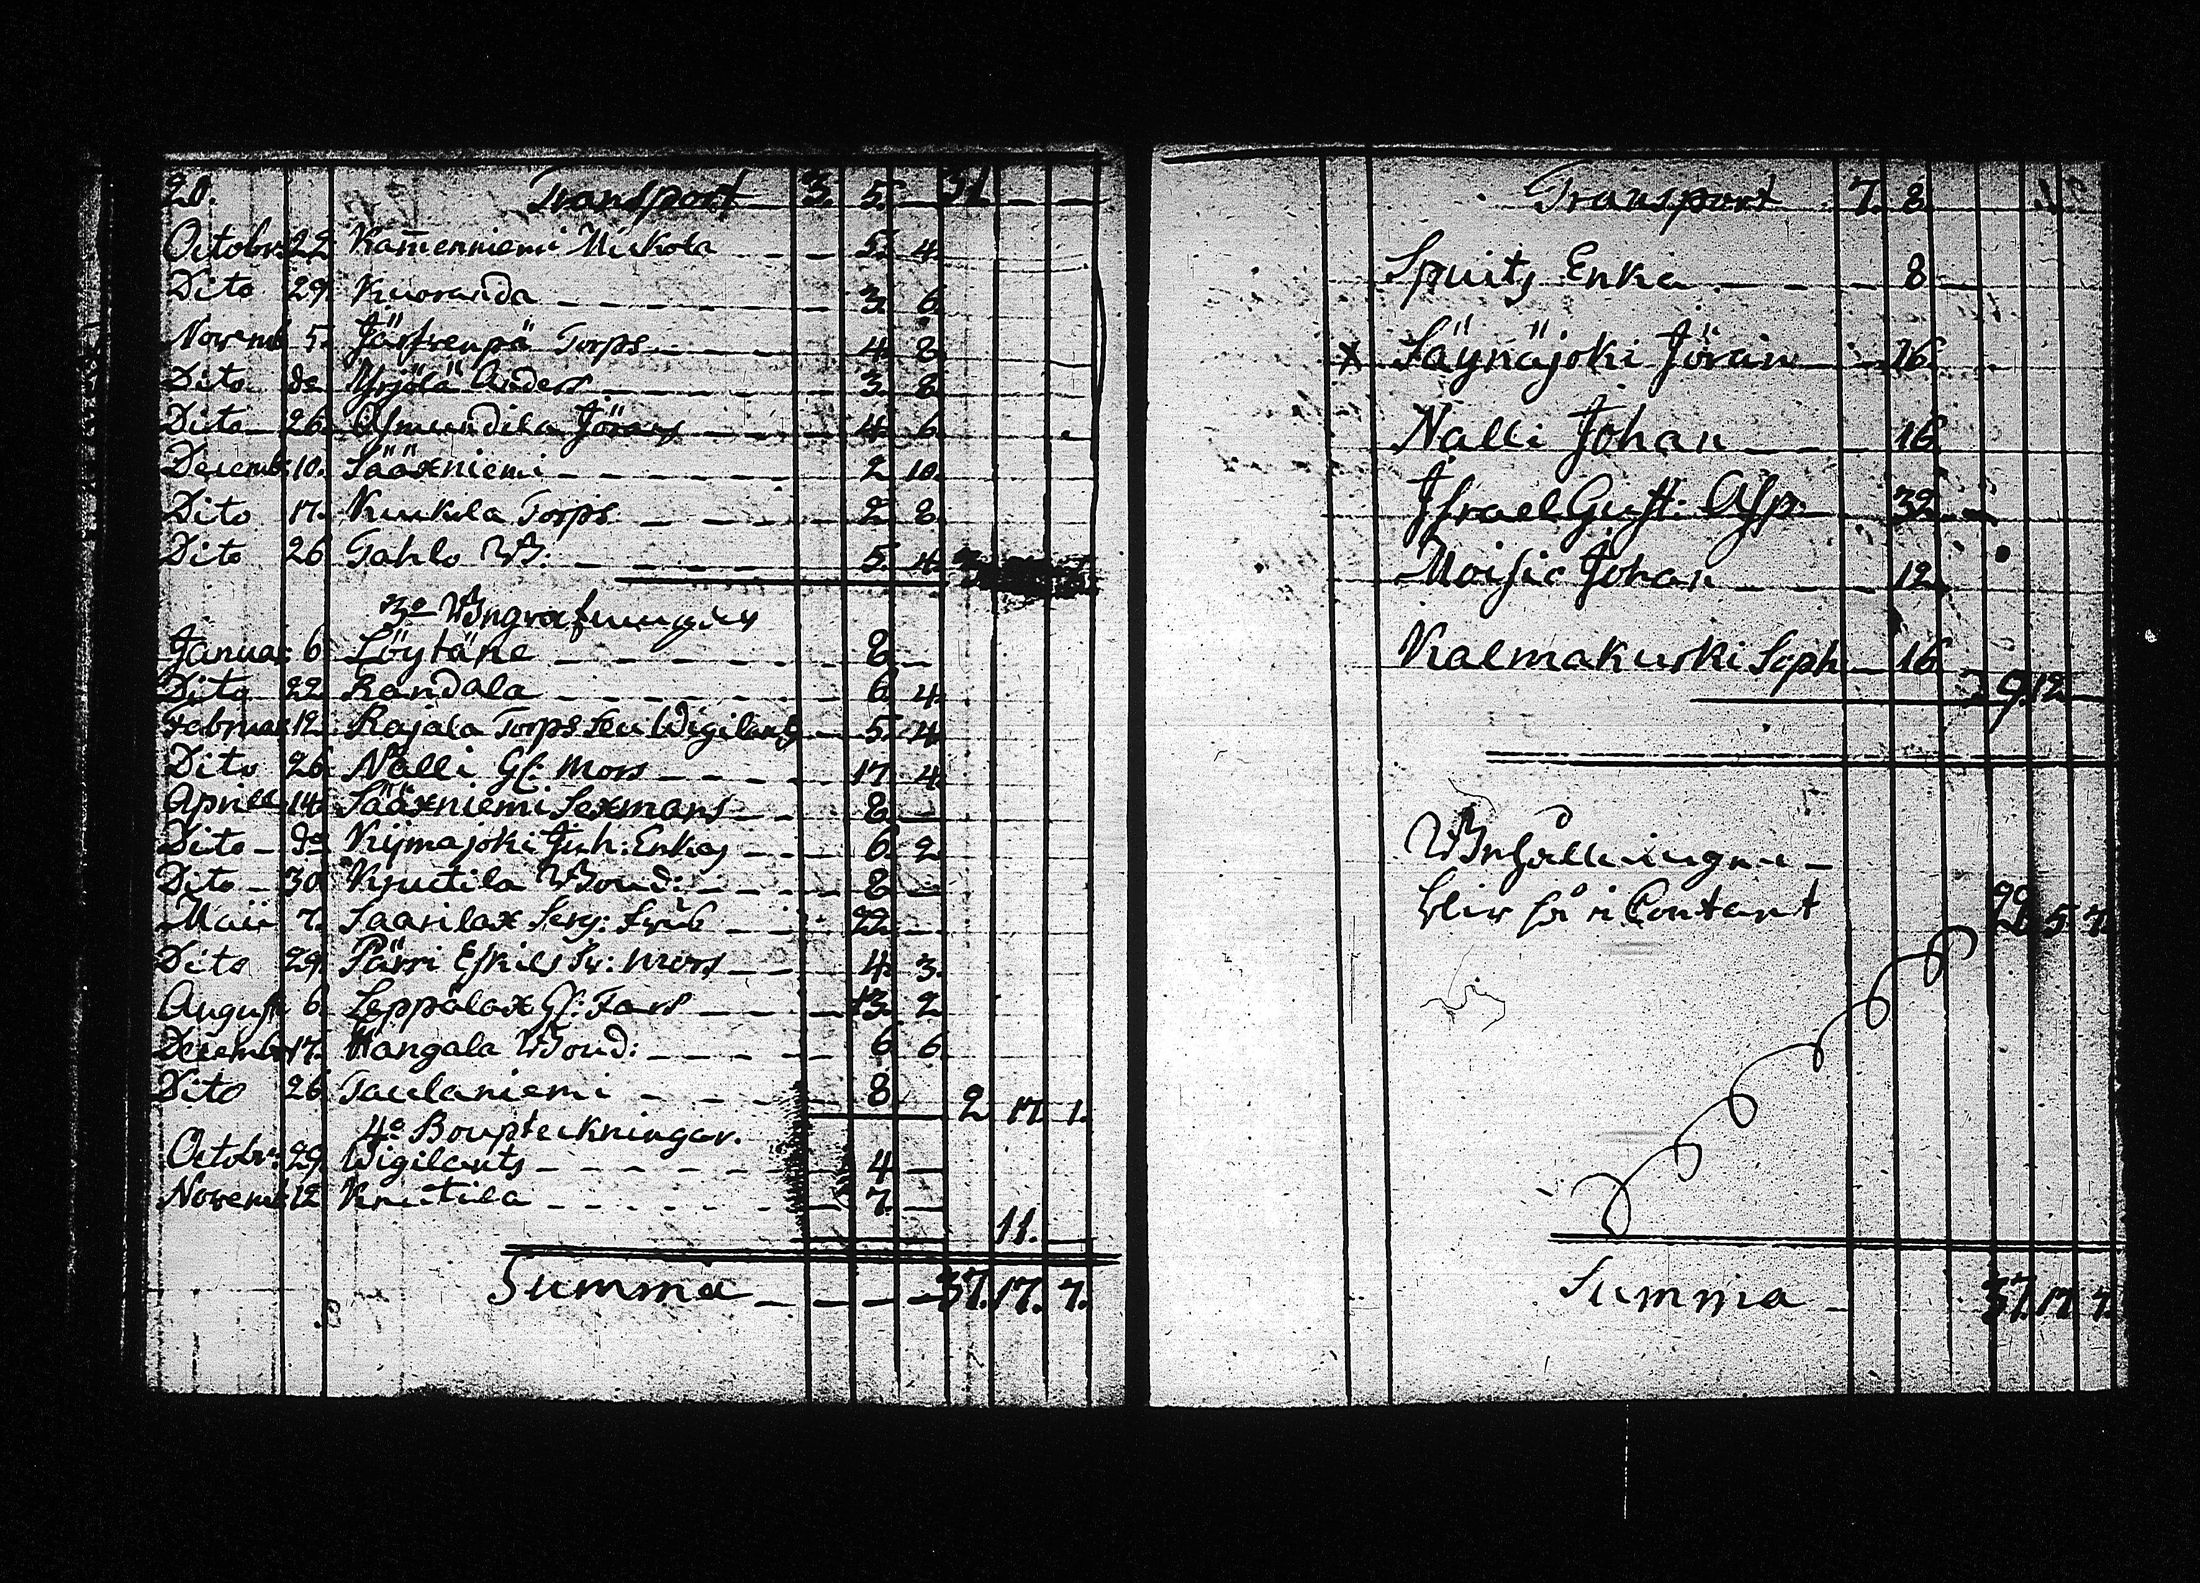 20. Transport 3. 5. — 31. — —
Octobr: 22. Kamenniemi Mickola — — 5. 4.
Dito 29. Kuoranda — — — — 3. 6.
Novemb 5. Järfvenpä Torps — — — 4. 8.
Dito do Yrjölä Anders — — — 3. 8.
Dito 26. Asmundila Jörans — — — 4. 6.
Decemb: 10. Sääxniemi — — — 2. 10.
Dito 17. Kuckila Torps — — — 2. 8.
Dito 26 Tahlo — — — — 5. 4.
3o
Januar: 6. Löytäne — — — — 8. —
Dito 22. Randala — — — — 6. 4.
Februar: 12. Rajala Torps Wigilants — 5. 4.
Dito 26. Nalli Gl: Mors — — — 17. 4.
Aprill 14. Sääxniemi Sexmans — — 8. —
Dito — do Kijmajoki Joh: Enkas — — 6. 2.
Dito — 30 Knutila Bond: — — — 8. —
Maii 7. Saarilax Serg: — — 22. —
Dito 29. Pärri Eskils Sv: Mors — — 4. 3.
August 6. Leppälax Gl: Fars — — — 13. 2.
Decemb: 17. Hangala Bond: — — — 6. 6.
Dito 26 Taulaniemi — — — — 8. 2. 17. 1.
4o Boupteckningar.
Octobr: 29. Wigilants — — — — 4. —
Novemb: 12 Knutila — — — — 7. —
11. —
Summa — — — — 37. 17. 7.
Transport 7. 8.
Spuits Enka — — — — 8. —
x Säynäjoki Jöran — — 16.
Nalli Johan — — — 16.
Israel Gust: Asp — 32. —
Moisio Johan — — — 12.
Kalmakurki Soph — 16. —
9. 12 —
blir Contant 5. 7.
Summa — 37. 17. 7.